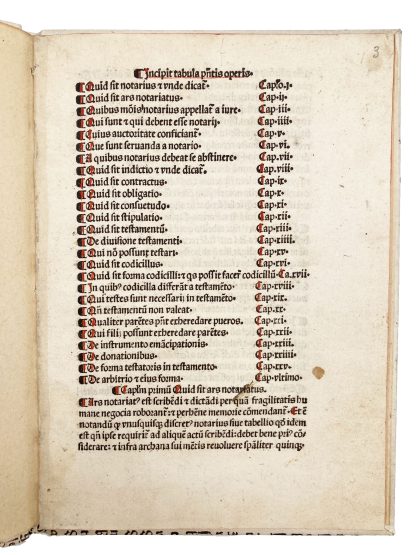 3
¶Incipit tabula pñtis operis.
¶Quid sit notarius ⁊ vnde dicat᷑. Caplo.j.
¶Quid sit ars notariatus. Cap.ij.
¶Quibus mõis notarius appellat᷑ a iure. Cap.iii.
¶Qui sunt ⁊ qui debent esse notarij. Cap.iiii.
¶Cuius auctoritate conficiant᷑. Cap.v.
¶Que sunt seruanda a notario. Cap.vi.
¶A quibus notarius debeat se abstinere. Cap.vii.
¶Quid sit indictio ⁊ vnde dicat᷑. Cap.viii.
¶Quid sit contractus. Cap.ix
¶Quid sit obligatio. Cap.x.
¶Quid sit consuetudo. Cap.xi.
¶Quid sit stipulatio. Cap.xii
¶Quid sit testamentũ. Cap.xiii
¶De diuisione testamenti. Cap.xiiii.
¶Qui nõ possunt testari. Cap.xv.
¶Quid sit codicillus. Cap.xvi.
¶Quid sit forma codicilli ⁊ qđ possit facer̃ codicillũ. Ca.xvii.
¶In quibꝰ codicilla differãt a testamẽto. Cap.xviii.
¶Qui testes sunt necessarii in testamẽto. Cap.xix.
¶Qñ testamentũ non valeat. Cap.xx.
¶Qualiter parẽtes pñt exheredare pueros. Cap.xxi.
¶Qui filii possunt exheredare parẽtes. Cap.xxii.
¶De instrumento emãcipationis. Cap.xxiii.
¶De donationibus. Cap.xxiiii.
¶De forma testatoris in testamento. Cap.xxv.
¶De arbitrio ⁊ eius forma. Cap.vltimo.
¶Caplm primũ Quid sit ars notariatus.
¶Ars notariatꝰ est scribẽdi ⁊ dictãdi per quã fragilitatis hu
mane negocia roborant᷑ ⁊ perhẽne memorie cõmendant᷑. Et ẽ
notandũ ꝙ vnusquisqꝫ discretꝰ notarius siue tabellio qđ idem
est qñ ipse requirit᷑ ad aliquẽ actũ scribẽdi: debet bene priꝰ cõ
siderare: ⁊ infra archana sui mẽtis reuoluere spãliter quinqꝫ.